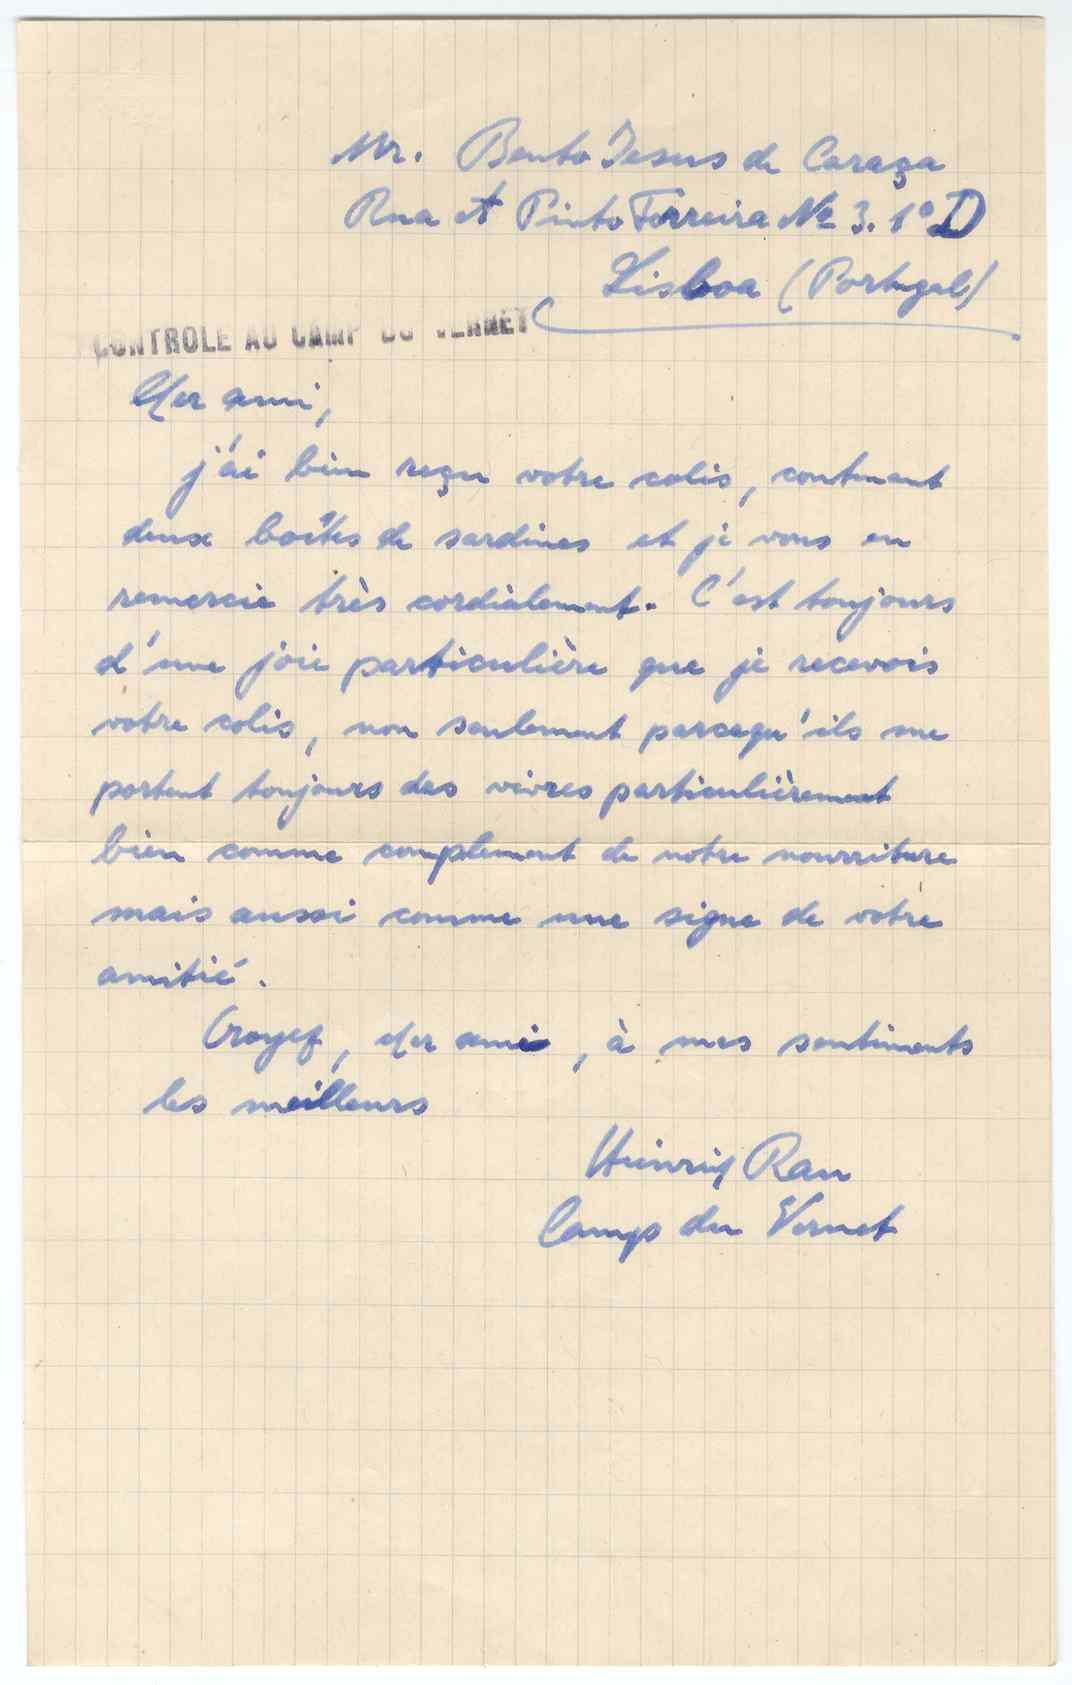 Mr. Bento Jesus de Caraça
Rua A Pinto Ferreira No 3. 1º D
Lisboa (Portugal)
CONTROLE AU CAMP DU VERNET
Cher ami,
j'ai bien reçu votre colis, contenant
deux boîtes de sardines et je vous en
remercie très cordialement. C'est toujours
d'une joie particulière que je recevois
votre colis, non seulement parcequ'ils me
portent toujours des vivres particulièrement
bien comme complement de notre nourriture
mais aussi comme une signe de votre
amitié.
Croyez, cher ami, à mes sentiments
les meilleurs
Heinrich Rau
Camp du Vernet